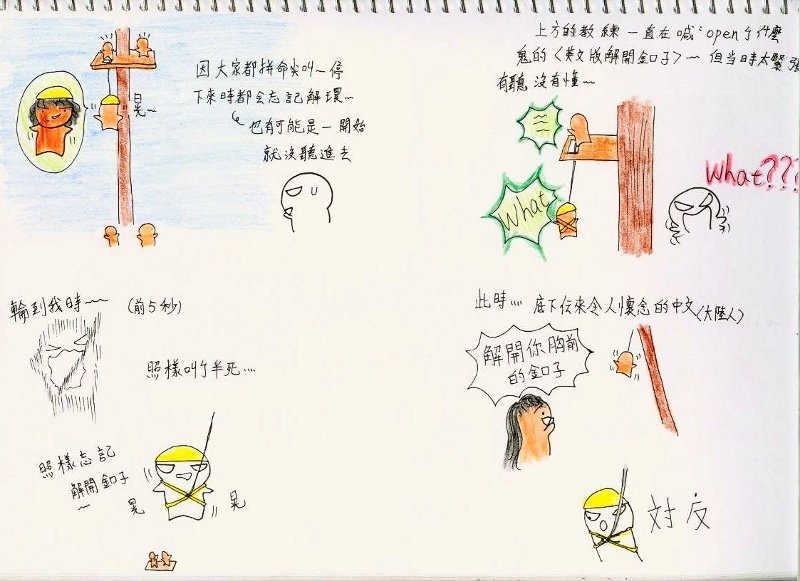 因大家都拼命尖叫~停
下來時都会忘記解環~
也有可能是一開始
就沒聽進去
晃~
上方的教練一直在喊:open了什麼
鬼的〈英文版解開釦子〉~但当時太緊張
有聽沒有懂~
What
What???
輪到我時~~~ (前5秒)
照樣叫了半死....
照樣忘記
解開釦子
~
晃
晃
此時.... 底下伝來令人懷念的中文(大陸人)
解開你胸前
的釦子
対反